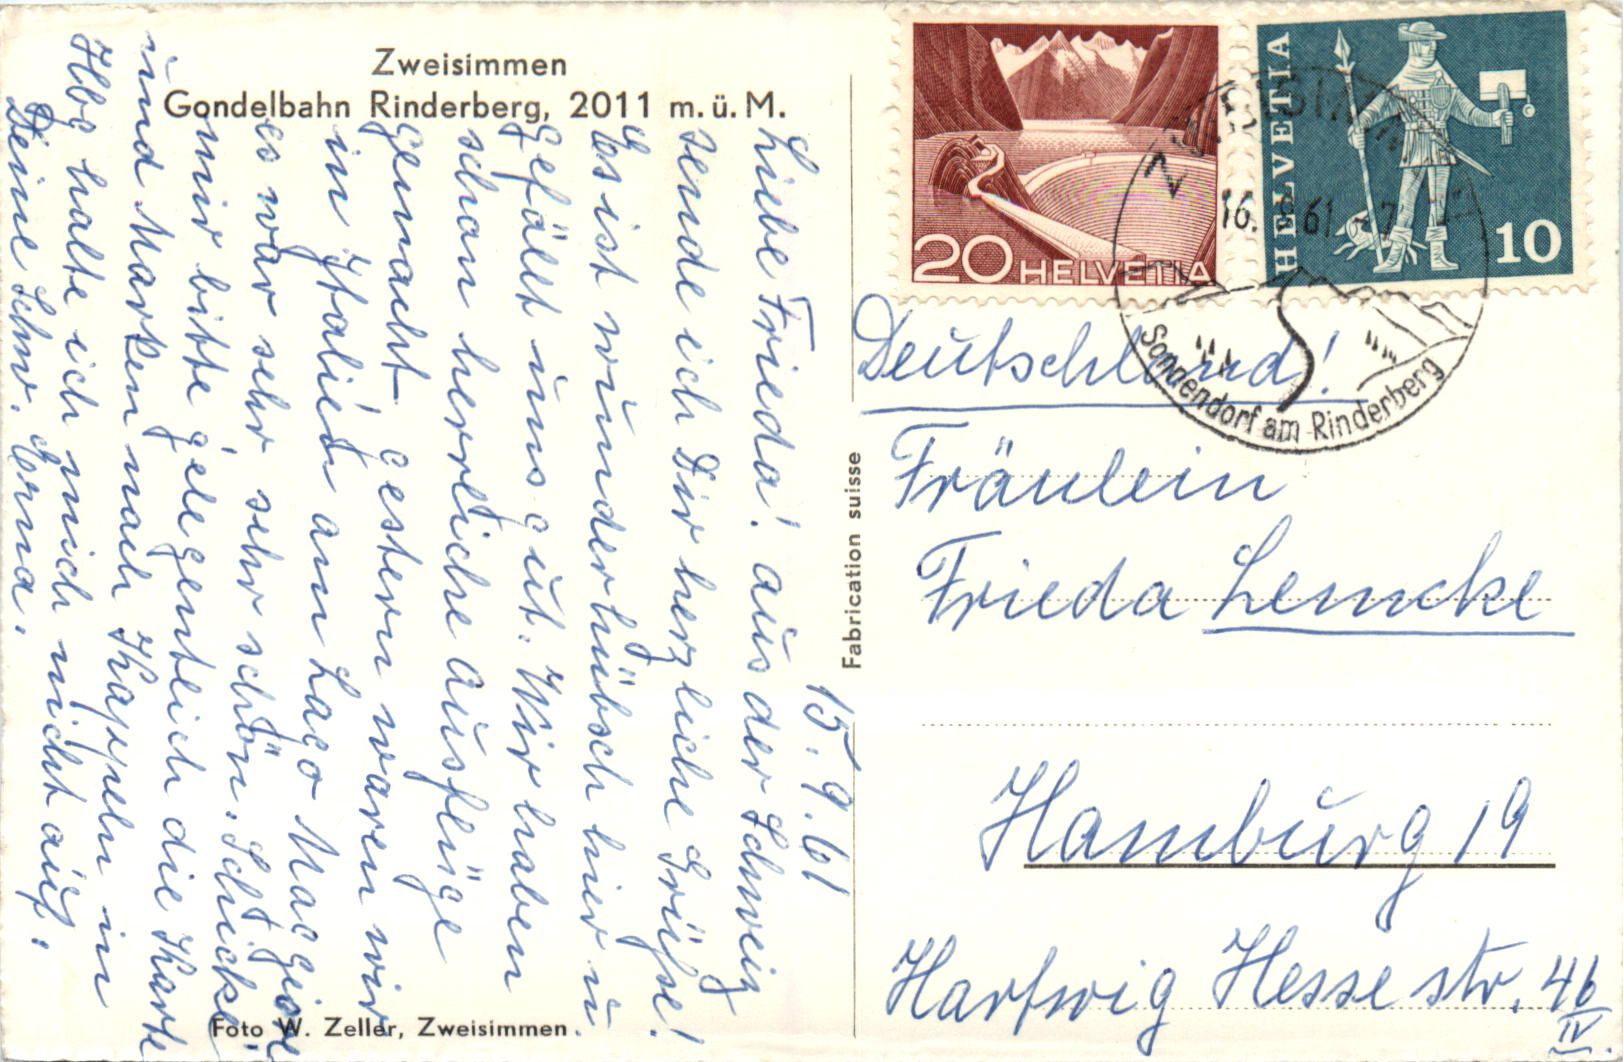 Zweisimmen
Gondelbahn Rinderberg, 2011 m.ü.M.
15.9.61
Liebe Frieda! aus der Schweiz
sende ich Dir herzliche Grüße!
Es ist wunderhübsch hier u
gefällt uns gut. Wir haben
schon herrliche Ausflüge
gemacht gestern waren wir
in Italien am Lago Maggiore
es war sehr sehr schön. Schicke
mir bitte gelegentlich die Karte
und Marken nach Kappeln in
Ilbe halte ich mich nicht auf.
Deine Schw. Erna.
Foto W. Zeller, Zweisimmen.
Fabrication suisse
20 HELVETIA
HELVETIA
10
16. 9 61 -7
Sonnendorf am Rinderberg
Deutschland!
Fräulein
Frieda Lemcke
Hamburg 19
Hartwig Hesse str. 46
IV.